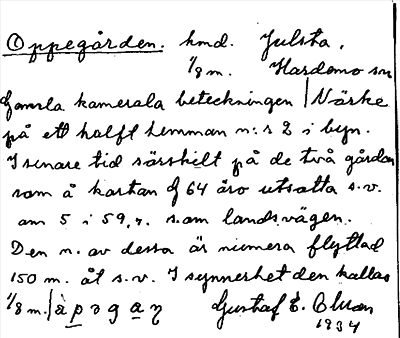 Oppegården. hmd. Julsta,
1/8 m. Hardemo sn
Gamla kamerala beteckningen | Närke
på ett halft hemman n:s 2 i byn.
I senare tid särskilt på de två gårdar
som å kartan 64 äro utsatta s.v.
om 5 i 59, s.om landsvägen.
Den n. av dessa är numera flyttad
150 m. åt s.v. I synnerhet den kallas
1/8 m. | àpəgaɳ Gustaf E. Olsson
1934